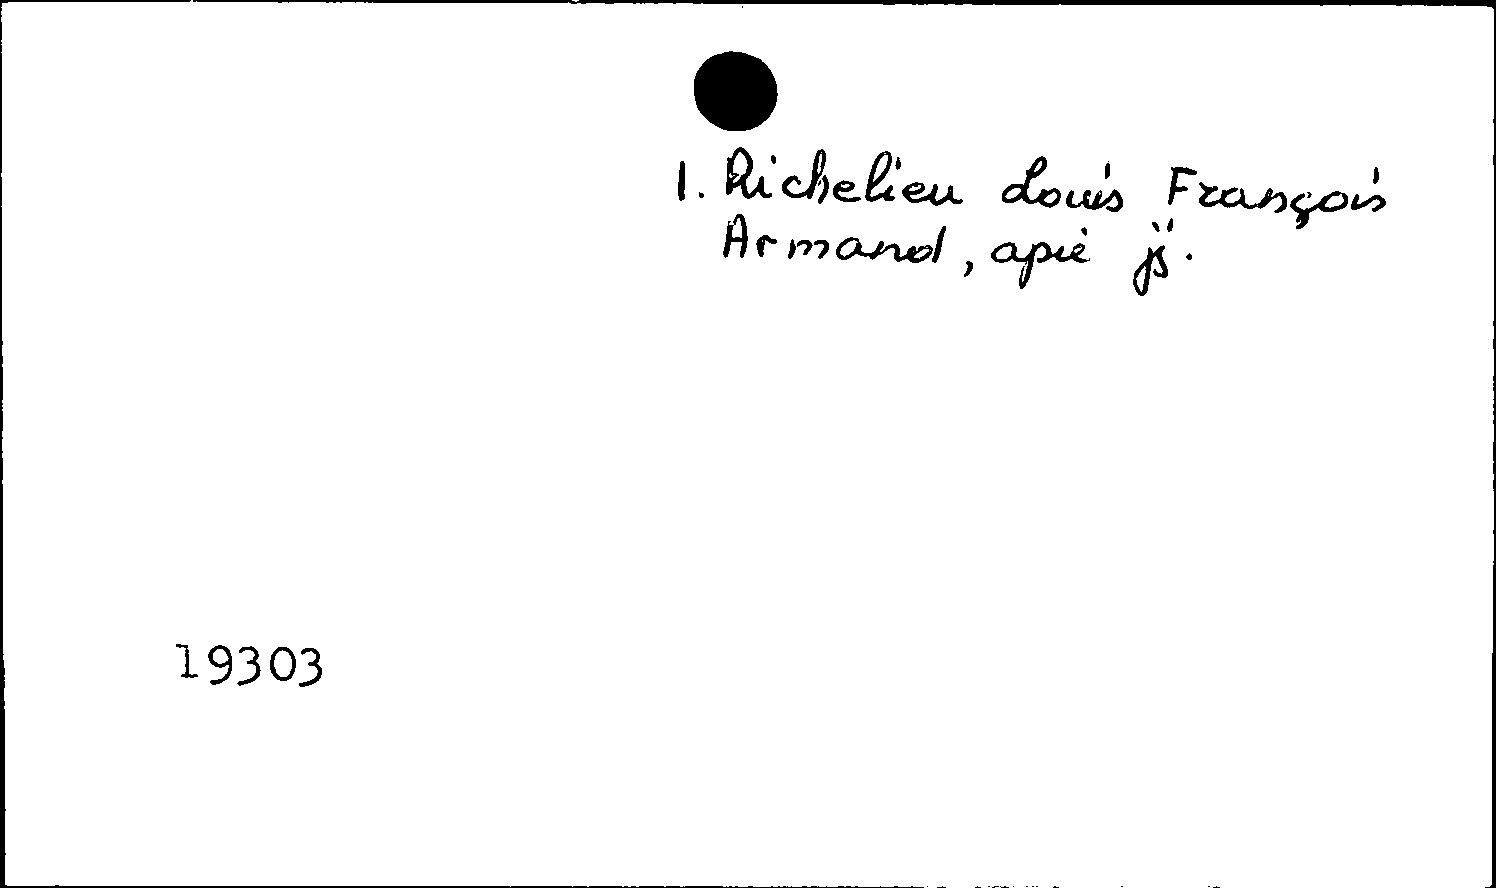 1. Richelieu Louis François
Armand, apie jį.
19303